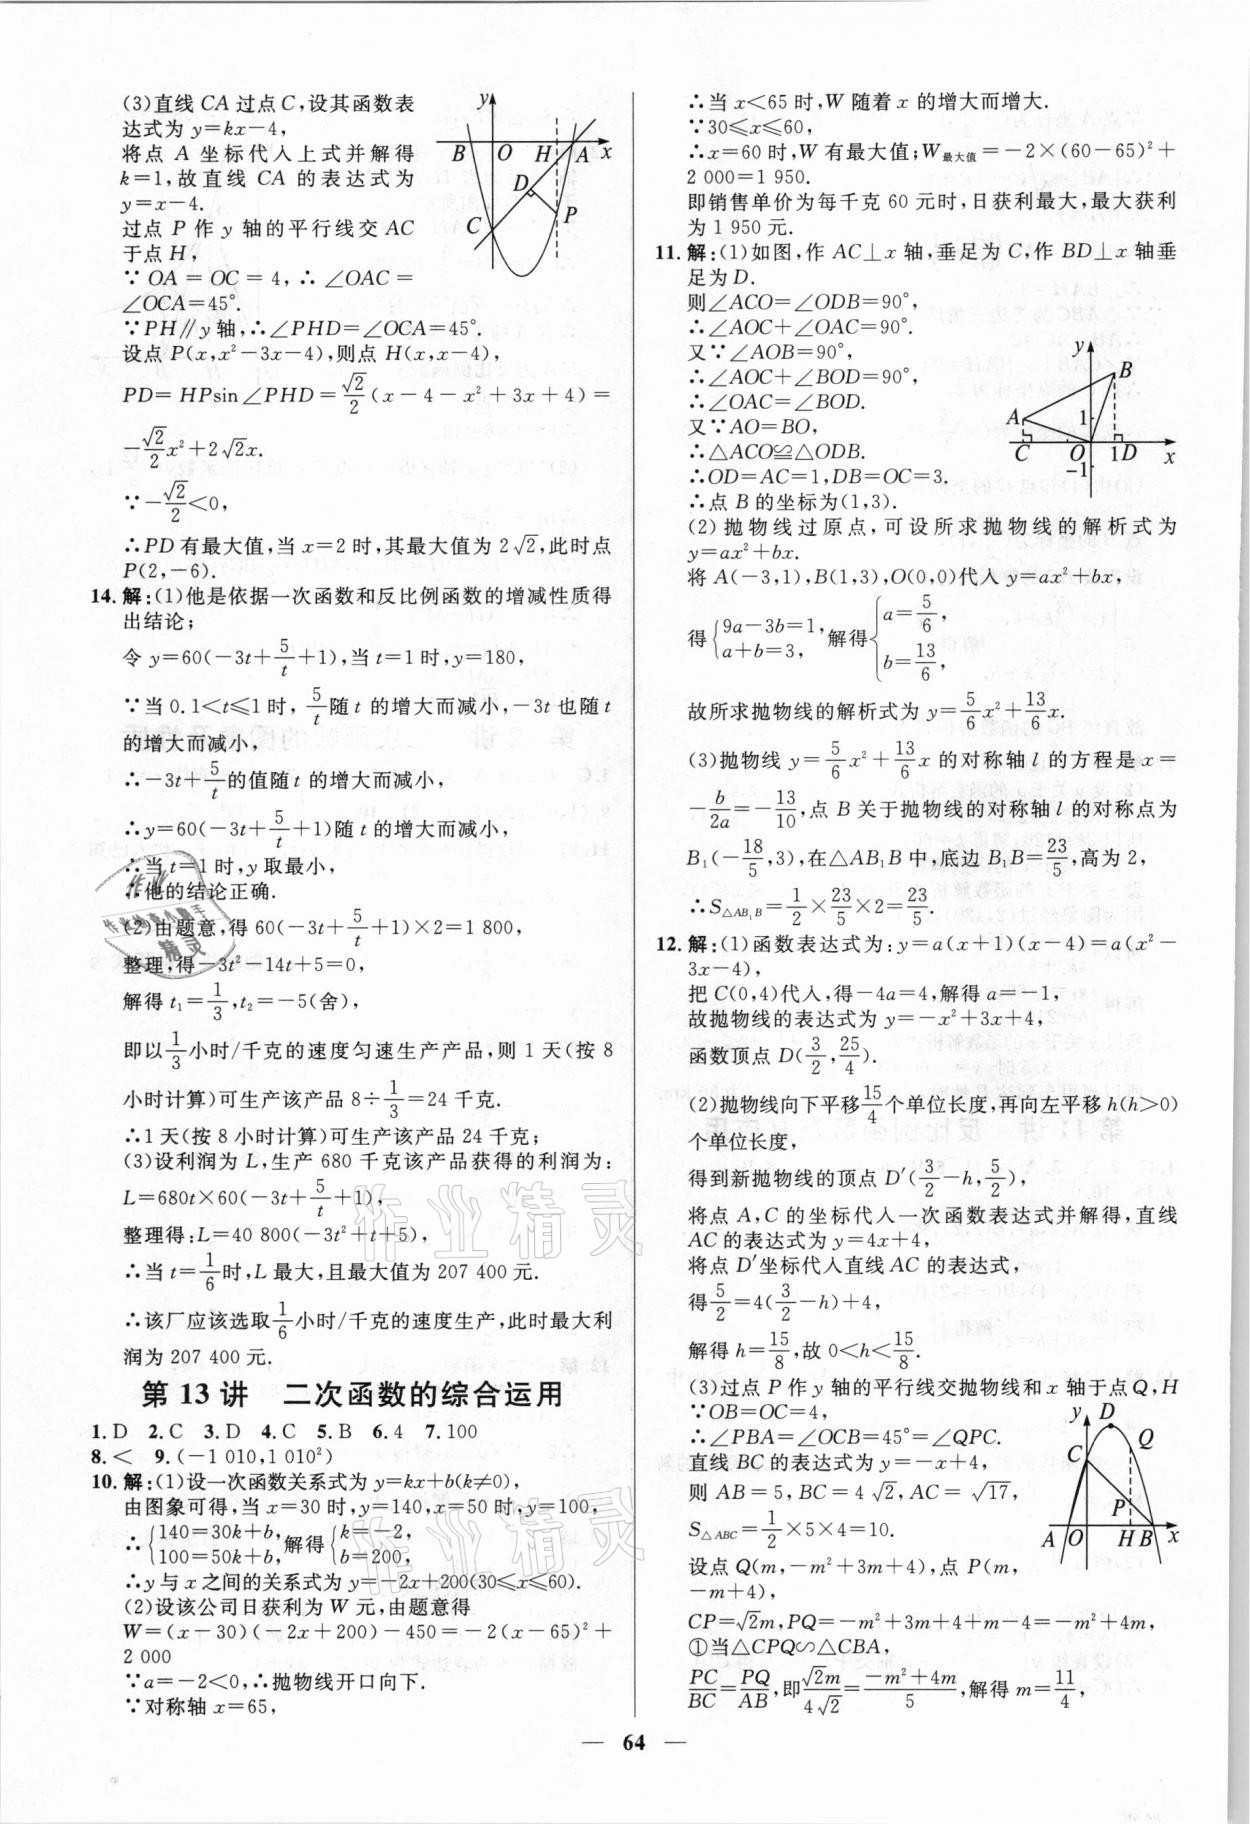 (3)直线 CA 过点 C,设其函数表
达式为 y=kx-4,
将点 A 坐标代入上式并解得
k=1,故直线 CA 的表达式为
y=x-4.
过点 P 作 y 轴的平行线交 AC
于点 H,
∵OA=OC=4,∴∠OAC=
∠OCA=45°.
∵PH∥y 轴,∴∠PHD=∠OCA=45°.
设点 P(x,x²-3x-4),则点 H(x,x-4),
PD=HPsin∠PHD=√2/2(x-4-x²+3x+4)=
-√2/2x²+2√2x.
∵-√2/2<0,
∴PD 有最大值,当 x=2 时,其最大值为 2√2,此时点
P(2,-6).
y
B O H A x
D
P
C
14.解:(1)他是依据一次函数和反比例函数的增减性质得
出结论;
令 y=60(-3t+5/t+1),当 t=1 时,y=180,
∵当 0.1<t≤1 时,5/t随 t 的增大而减小,-3t 也随 t
的增大而减小,
∴-3t+5/t的值随 t 的增大而减小,
∴y=60(-3t+5/t+1)随 t 的增大而减小,
∴当 t=1 时,y 取最小,
∴他的结论正确.
(2)由题意,得 60(-3t+5/t+1)×2=1 800,
整理,得-3t²-14t+5=0,
解得 t₁=1/3,t₂=-5(舍),
即以1/3小时/千克的速度匀速生产产品,则 1 天(按 8
小时计算)可生产该产品 8÷1/3=24 千克.
∴1 天(按 8 小时计算)可生产该产品 24 千克;
(3)设利润为 L,生产 680 千克该产品获得的利润为:
L=680t×60(-3t+5/t+1),
整理得:L=40 800(-3t²+t+5),
∴当 t=1/6时,L 最大,且最大值为 207 400 元.
∴该厂应该选取1/6小时/千克的速度生产,此时最大利
润为 207 400 元.
第 13 讲 二次函数的综合运用
1.D 2.C 3.D 4.C 5.B 6.4 7.100
8.< 9.(-1 010,1 010²)
10.解:(1)设一次函数关系式为 y=kx+b(k≠0),
由图象可得,当 x=30 时,y=140,x=50 时,y=100,
∴{140=30k+b, 100=50k+b, 解得{k=-2, b=200.
∴y 与 x 之间的关系式为 y=-2x+200(30≤x≤60).
(2)设该公司日获利为 W 元,由题意得
W=(x-30)(-2x+200)-450=-2(x-65)²+
2 000
∵a=-2<0,∴抛物线开口向下.
∵对称轴 x=65,
∴当 x<65 时,W 随着 x 的增大而增大.
∵30≤x≤60,
∴x=60 时,W 有最大值;W最大值=-2×(60-65)²+
2 000=1 950.
即销售单价为每千克 60 元时,日获利最大,最大获利
为 1 950 元.
11.解:(1)如图,作 AC⊥x 轴,垂足为 C,作 BD⊥x 轴垂
足为 D.
则∠ACO=∠ODB=90°,
∴∠AOC+∠OAC=90°.
又∵∠AOB=90°,
∴∠AOC+∠BOD=90°,
∴∠OAC=∠BOD.
又∵AO=BO,
∴△ACO≌△ODB.
∴OD=AC=1,DB=OC=3.
∴点 B 的坐标为(1,3).
y
B
A 1
C O 1 D x
-1
(2)抛物线过原点,可设所求抛物线的解析式为
y=ax²+bx.
将 A(-3,1),B(1,3),O(0,0)代入 y=ax²+bx,
得{9a-3b=1, a+b=3, 解得{a=5/6, b=13/6,
故所求抛物线的解析式为 y=5/6x²+13/6x.
(3)抛物线 y=5/6x²+13/6x 的对称轴 l 的方程是 x=
-b/2a=-13/10,点 B 关于抛物线的对称轴 l 的对称点为
B₁(-18/5,3),在△AB₁B 中,底边 B₁B=23/5,高为 2,
∴S△AB₁B=1/2×23/5×2=23/5.
12.解:(1)函数表达式为:y=a(x+1)(x-4)=a(x²-
3x-4),
把 C(0,4)代入,得-4a=4,解得 a=-1,
故抛物线的表达式为 y=-x²+3x+4,
函数顶点 D(3/2,25/4).
(2)抛物线向下平移15/4个单位长度,再向左平移 h(h>0)
个单位长度,
得到新抛物线的顶点 D′(3/2-h,5/2),
将点 A,C 的坐标代入一次函数表达式并解得,直线
AC 的表达式为 y=4x+4,
将点 D′坐标代入直线 AC 的表达式,
得5/2=4(3/2-h)+4,
解得 h=15/8,故 0<h<15/8.
(3)过点 P 作 y 轴的平行线交抛物线和 x 轴于点 Q,H
∵OB=OC=4,
∴∠PBA=∠OCB=45°=∠QPC.
直线 BC 的表达式为 y=-x+4,
则 AB=5,BC=4√2,AC=√17,
S△ABC=1/2×5×4=10.
设点 Q(m,-m²+3m+4),点 P(m,
-m+4),
y D
Q
C
P
A O H B x
CP=√2m,PQ=-m²+3m+4+m-4=-m²+4m,
①当△CPQ∽△CBA,
PC/BC=PQ/AB,即√2m/4√2=-m²+4m/5,解得 m=11/4,
— 64 —
作业精灵
作业精灵
作业
精灵